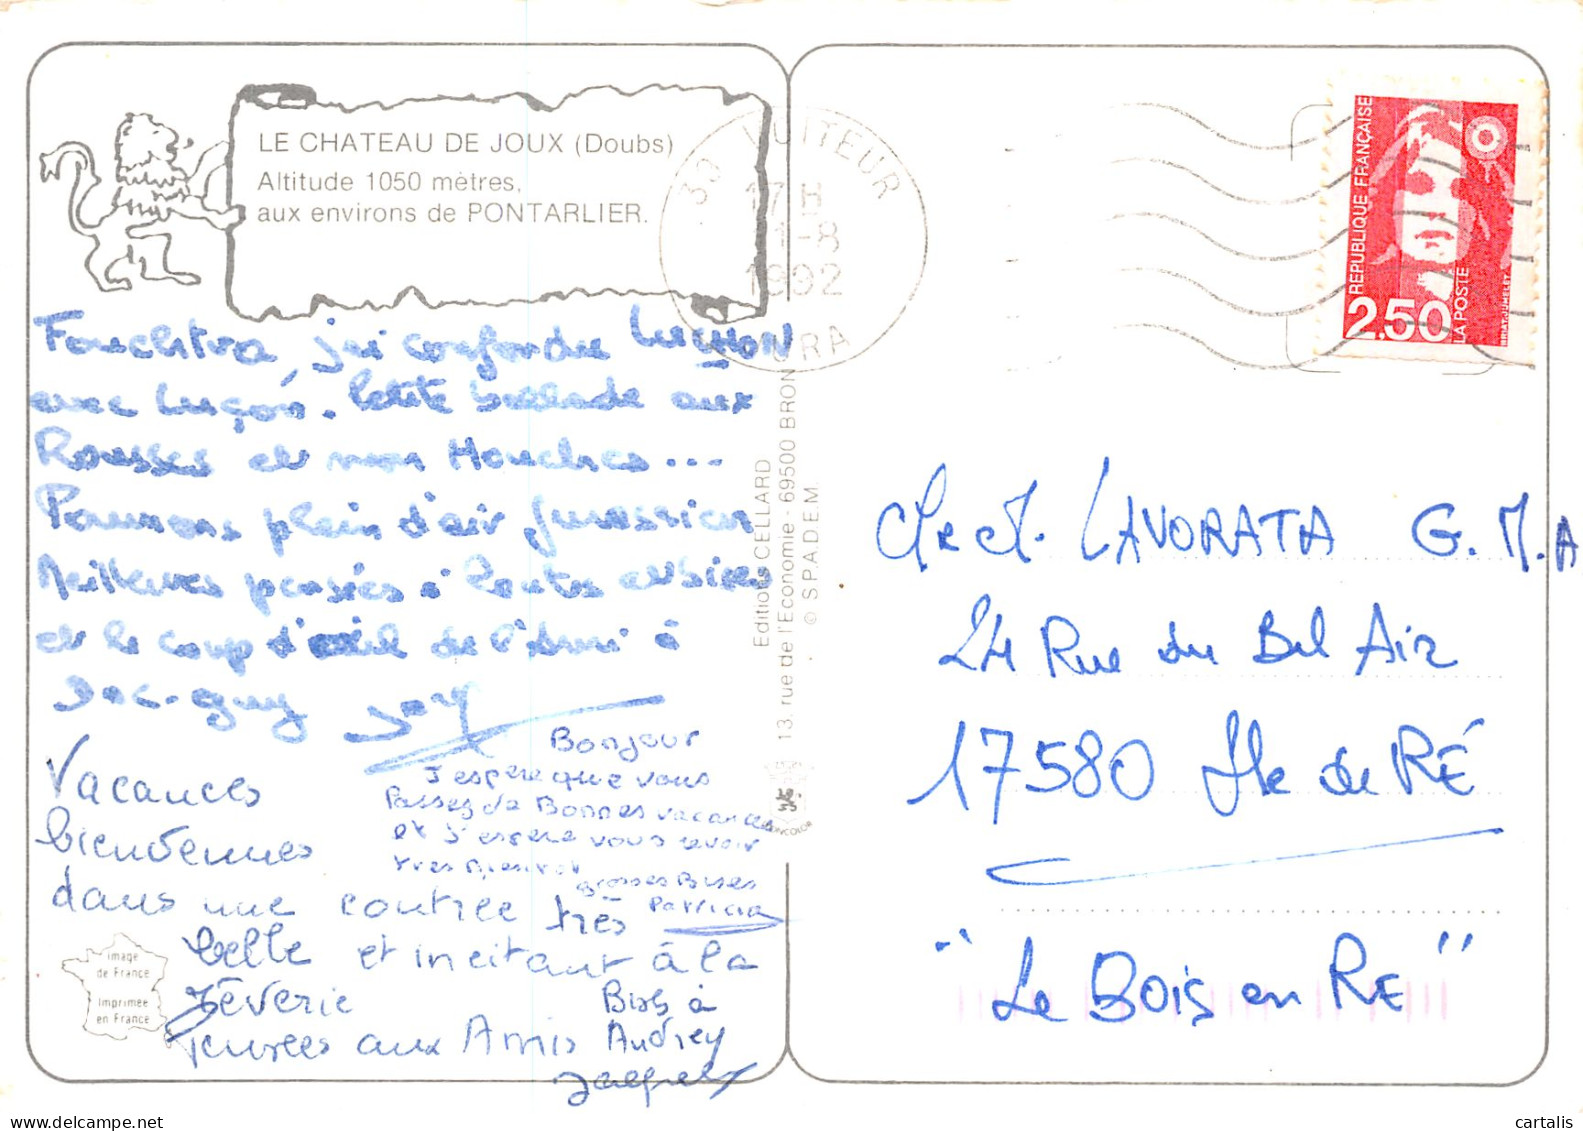 LE CHATEAU DE JOUX (Doubs)
Altitude 1050 mètres,
aux environs de PONTARLIER.
39 VUITEUR
17 H
1-8
1992
JURA
RÉPUBLIQUE FRANÇAISE
2,50
LA POSTE
BRIAT. JUMELET
Fouchtra j'ai confondu LUCHON
avec Luçon. Petite ballade aux
Rousses et non Houches...
Poumons plein d'air Jurassien
Meilleures pensées à toutes
et le coup d'œil de l'Ami à
Jac-guy
Bonjour
J'espere que vous
Passez de Bonnes vacances
et J'espere vous revoir
Grosses Bises
Patricia
Vacances
bienvenues
dans une contrée très
belle et incitant à la
rêverie
Pensées aux Amis
Bises à
Audrey
Jacques
image
de France
Imprimée
en France
Editions CELLARD
13, rue de l'Economie - 69500 BRON
© S.P.A.D.E.M.
Mr et M. LAVORATA G.M.A
24 Rue du Bel Air
17580 Ile de RÉ
"Le Bois en RE"
cartalis